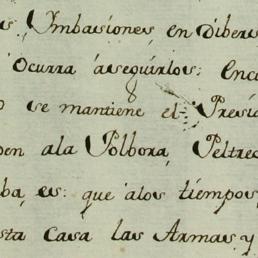 s Ymbaciones, en dibers
Ocurra áseguirlos; Enca
o se mantiene el Presid
en ala Pólbora, Peltrec
ba, es: que álos tiempos,
sta Casa las Armas y